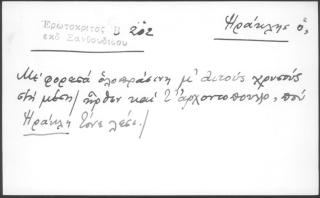 Ἐρωτόκριτος Β 202
ἐκδ Ξανθουδίδου
Ἡράκλης ὁ,
Μὲ φορεσὰ ὁλοπράσινη μ' ἀετοὺς χρυσοὺς
στὴ μέση / ἦρθεν καὶ τ' ἀρχοντόπουλο, ποὺ
Ἡράκλη τόνε λέσι. /